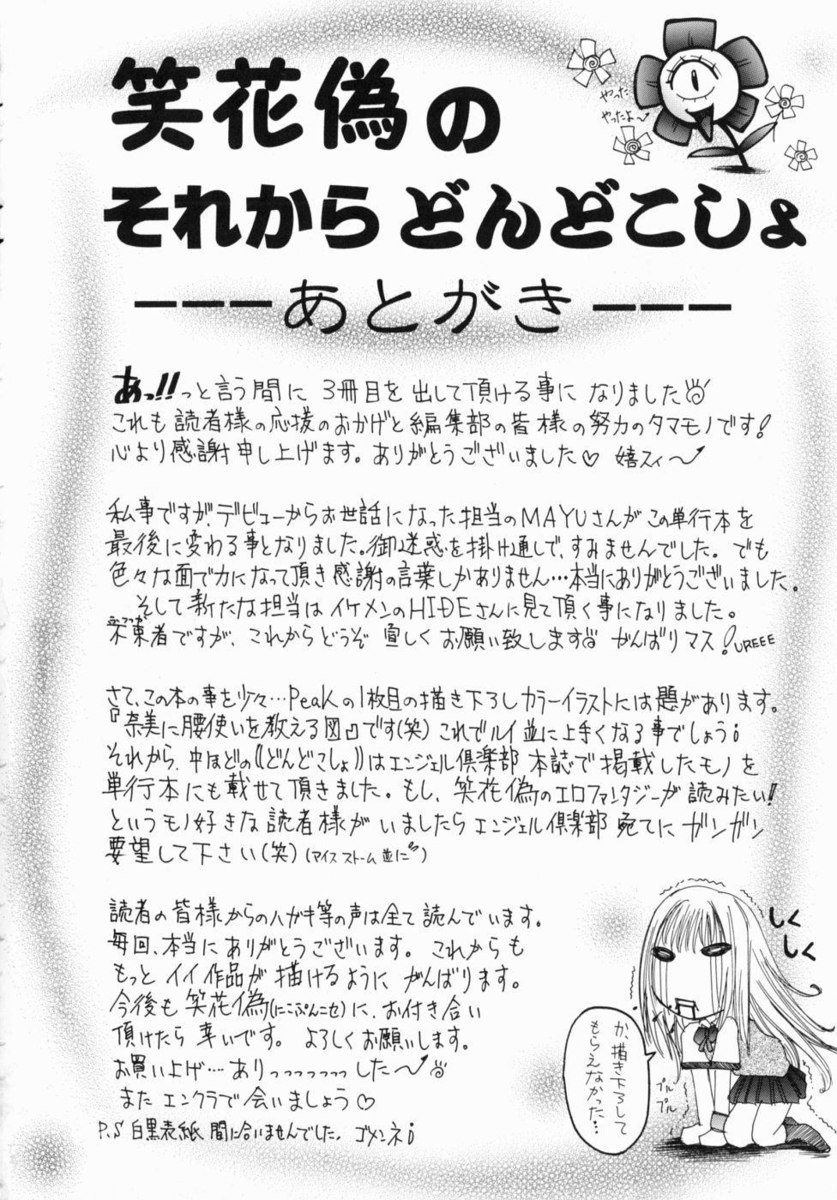 笑花偽の
それからどんどこしょ
やった
やったよ〜
---あとがき---
あっ!!っと言う間に3冊目を出して頂ける事になりました
これも読者様の応援のおかげと編集部の皆様の努力のタマモノです!
心より感謝申し上げます。ありがとうございました♡ 嬉スィ〜
私事ですが、デビューからお世話になった担当のMAYUさんがこの単行本を
最後に変わる事となりました。御迷惑を掛け通しで、すみませんでした。でも
色々な面で力になって頂き感謝の言葉しかありません…本当にありがとうございました。
そして新たな担当はイケメンのHIDEさんに見て頂く事になりました。
不束者ですが、これからどうぞ宜しくお願い致します がんばりマス! UREEE
さて、この本の事を少々…Peakの1枚目の描き下ろしカラーイラストには題があります。
『奈美に腰使いを教える図』です(笑)これでルイ並に上手くなる事でしょう!
それから、中ほどの《どんどこしょ》はエンジェル倶楽部本誌で掲載したモノを
単行本にも載せて頂きました。もし、笑花偽のエロファンタジーが読みたい!
というモノ好きな読者様がいましたらエンジェル倶楽部宛てにガンガン
要望して下さい(笑)(アイスストーム並に)
読者の皆様からのハガキ等の声は全て読んでいます。
毎回、本当にありがとうございます。これからも
もっとイイ作品が描けるようにがんばります。
今後も笑花偽(にこぷんニセ)に、お付き合い
頂けたら幸いです。よろしくお願いします。
お買い上げ…ありっっっっっっした〜
またエンクラで会いましょう♡
P.S 白黒表紙間に合いませんでした。ゴメンネ!
しく
しく
か、描き下ろして
もらえなかった…
プル
プル